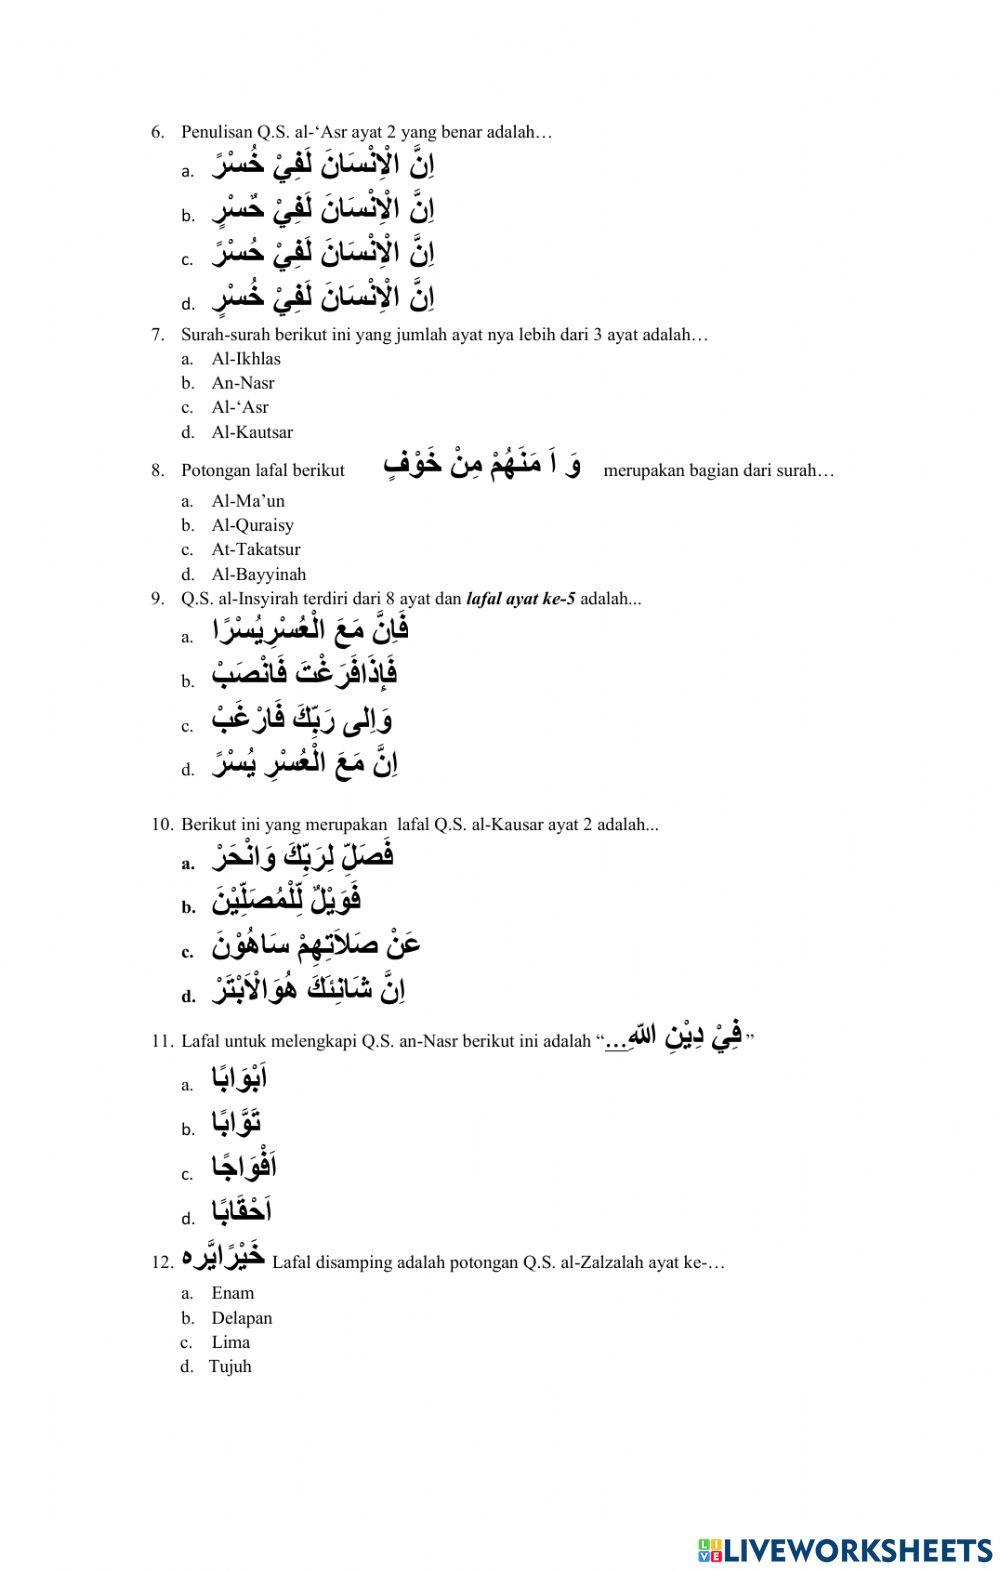 6. Penulisan Q.S. al-‘Asr ayat 2 yang benar adalah…
a. اِنَّ الْاِنْسَانَ لَفِيْ خُسْرً
b. اِنَّ الْاِنْسَانَ لَفِيْ حٌسْرٍ
c. اِنَّ الْاِنْسَانَ لَفِيْ حُسْرً
d. اِنَّ الْاِنْسَانَ لَفِيْ خُسْرٍ
7. Surah-surah berikut ini yang jumlah ayat nya lebih dari 3 ayat adalah…
a. Al-Ikhlas
b. An-Nasr
c. Al-‘Asr
d. Al-Kautsar
8. Potongan lafal berikut وَ اَ مَنَهُمْ مِنْ خَوْفٍ merupakan bagian dari surah…
a. Al-Ma’un
b. Al-Quraisy
c. At-Takatsur
d. Al-Bayyinah
9. Q.S. al-Insyirah terdiri dari 8 ayat dan lafal ayat ke-5 adalah...
a. فَاِنَّ مَعَ الْعُسْرِيُسْرًا
b. فَاِذَافَرَغْتَ فَانْصَبْ
c. وَاِلى رَبِّكَ فَارْغَبْ
d. اِنَّ مَعَ الْعُسْرِ يُسْرً
10. Berikut ini yang merupakan lafal Q.S. al-Kausar ayat 2 adalah...
a. فَصَلِّ لِرَبِّكَ وَانْحَرْ
b. فَوَيْلٌ لِّلْمُصَلِّيْنَ
c. عَنْ صَلاَتِهِمْ سَاهُوْنَ
d. اِنَّ شَانِئَكَ هُوَالْاَبْتَرْ
11. Lafal untuk melengkapi Q.S. an-Nasr berikut ini adalah “…فِيْ دِيْنِ اللّٰهِ”
a. اَبْوَابًا
b. تَوَّابًا
c. اَفْوَاجًا
d. اَحْقَابًا
12. خَيْرًايَّره Lafal disamping adalah potongan Q.S. al-Zalzalah ayat ke-…
a. Enam
b. Delapan
c. Lima
d. Tujuh
LIVEWORKSHEETS